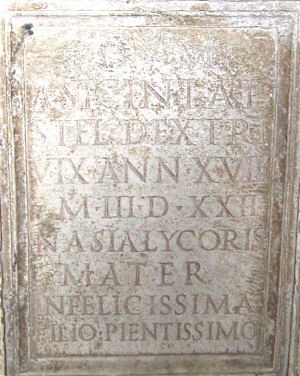 D M
A·SICINI·A·F
STEL·DEXTRI
VIX·ANN·XVII
M·III·D·XXII
NASIA LYCORIS
MATER
INFELICISSIMA
FILIO PIENTISSIMO